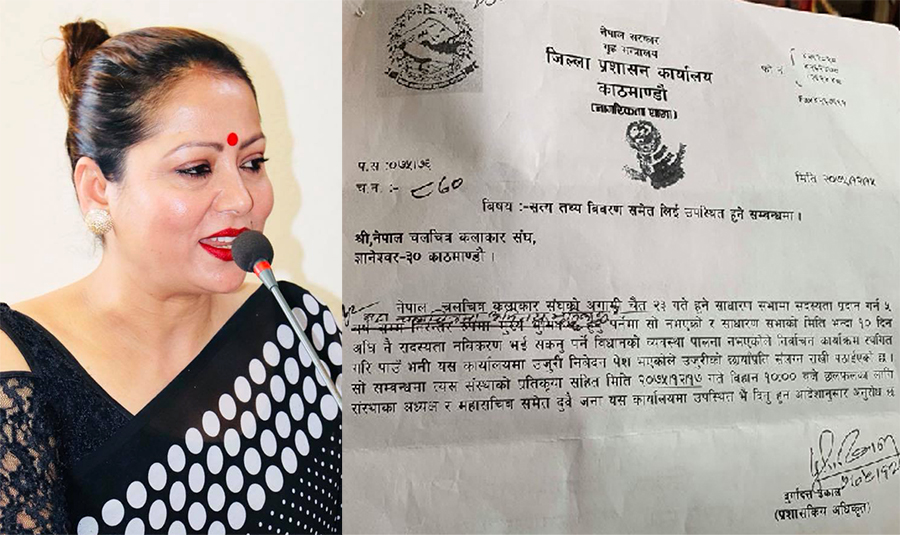 नेपाल सरकार
गृह मन्त्रालय
जिल्ला प्रशासन कार्यालय
काठमाण्डौ
(नागरिकता शाखा)
फो नं
Fax
प.स :०७५।७६
च.न :- ८६०
मिति २०७५।१२।१५
बिषय :-सत्य तथ्य बिबरण समेत लिई उपस्थित हुने सम्बन्धमा ।
श्री,नेपाल चलचित्र कलाकार संघ,
ज्ञानेश्वर-३० काठमाण्डौ ।
नेपाल चलचित्र कलाकार संघको अगामी चैत २३ गते हुने साधारण सभामा सदस्यता प्रदान गर्न ५
वर्ष सम्म निरन्तर रुपमा पुर्ण हुनु पर्नेमा सो नभएको र साधारण सभाको मिति भन्दा १० दिन
अघि नै सदस्यता नविकरण भई सक्नु पर्ने विधानको व्यवस्था पालना नभएकोले निर्वाचन कार्यक्रम स्थगित
गरि पाउँ भनी यस कार्यालयमा उजुरी निवेदन पेश भएकोले उजुरीको छायाँपति संलग्न राखी पठाईएको छ ।
सो सम्बन्धमा त्यस संस्थाको प्रतिकृया सहित मिति २०७५।१२।१७ गते विहान १०:०० बजे छलफलका लागि
संस्थाका अध्यक्ष र महासचिव समेत दुवै जना यस कार्यालयमा उपस्थित भै दिनु हुन आदेशानुसार अनुरोध छ
दुर्गादत्त ढकाल
(प्रशासकिय अधिकृत)